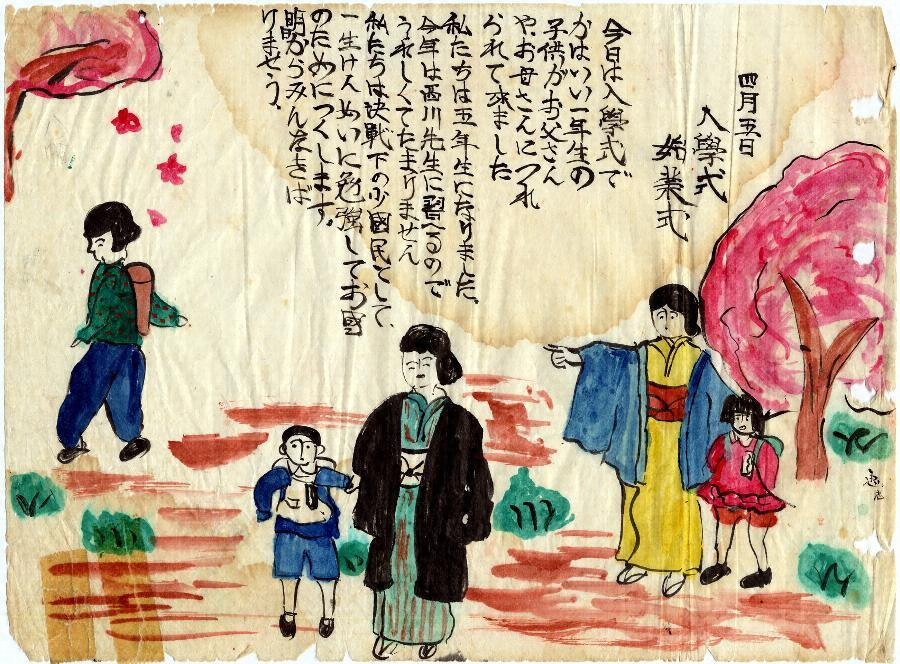 四月五日
入學式
始業式
今日は入學式で
かはいい一年生の
子供がお父さん
や、お母さんにつれ
られて來ました
私たちは五年生になりました。
今年は西川先生に習へるので
うれしくてたまりません
私たちは決戦下の少國民として、
一生けんめいに勉強してお國
のためにつくします。
明日からみんなきば
りませう。